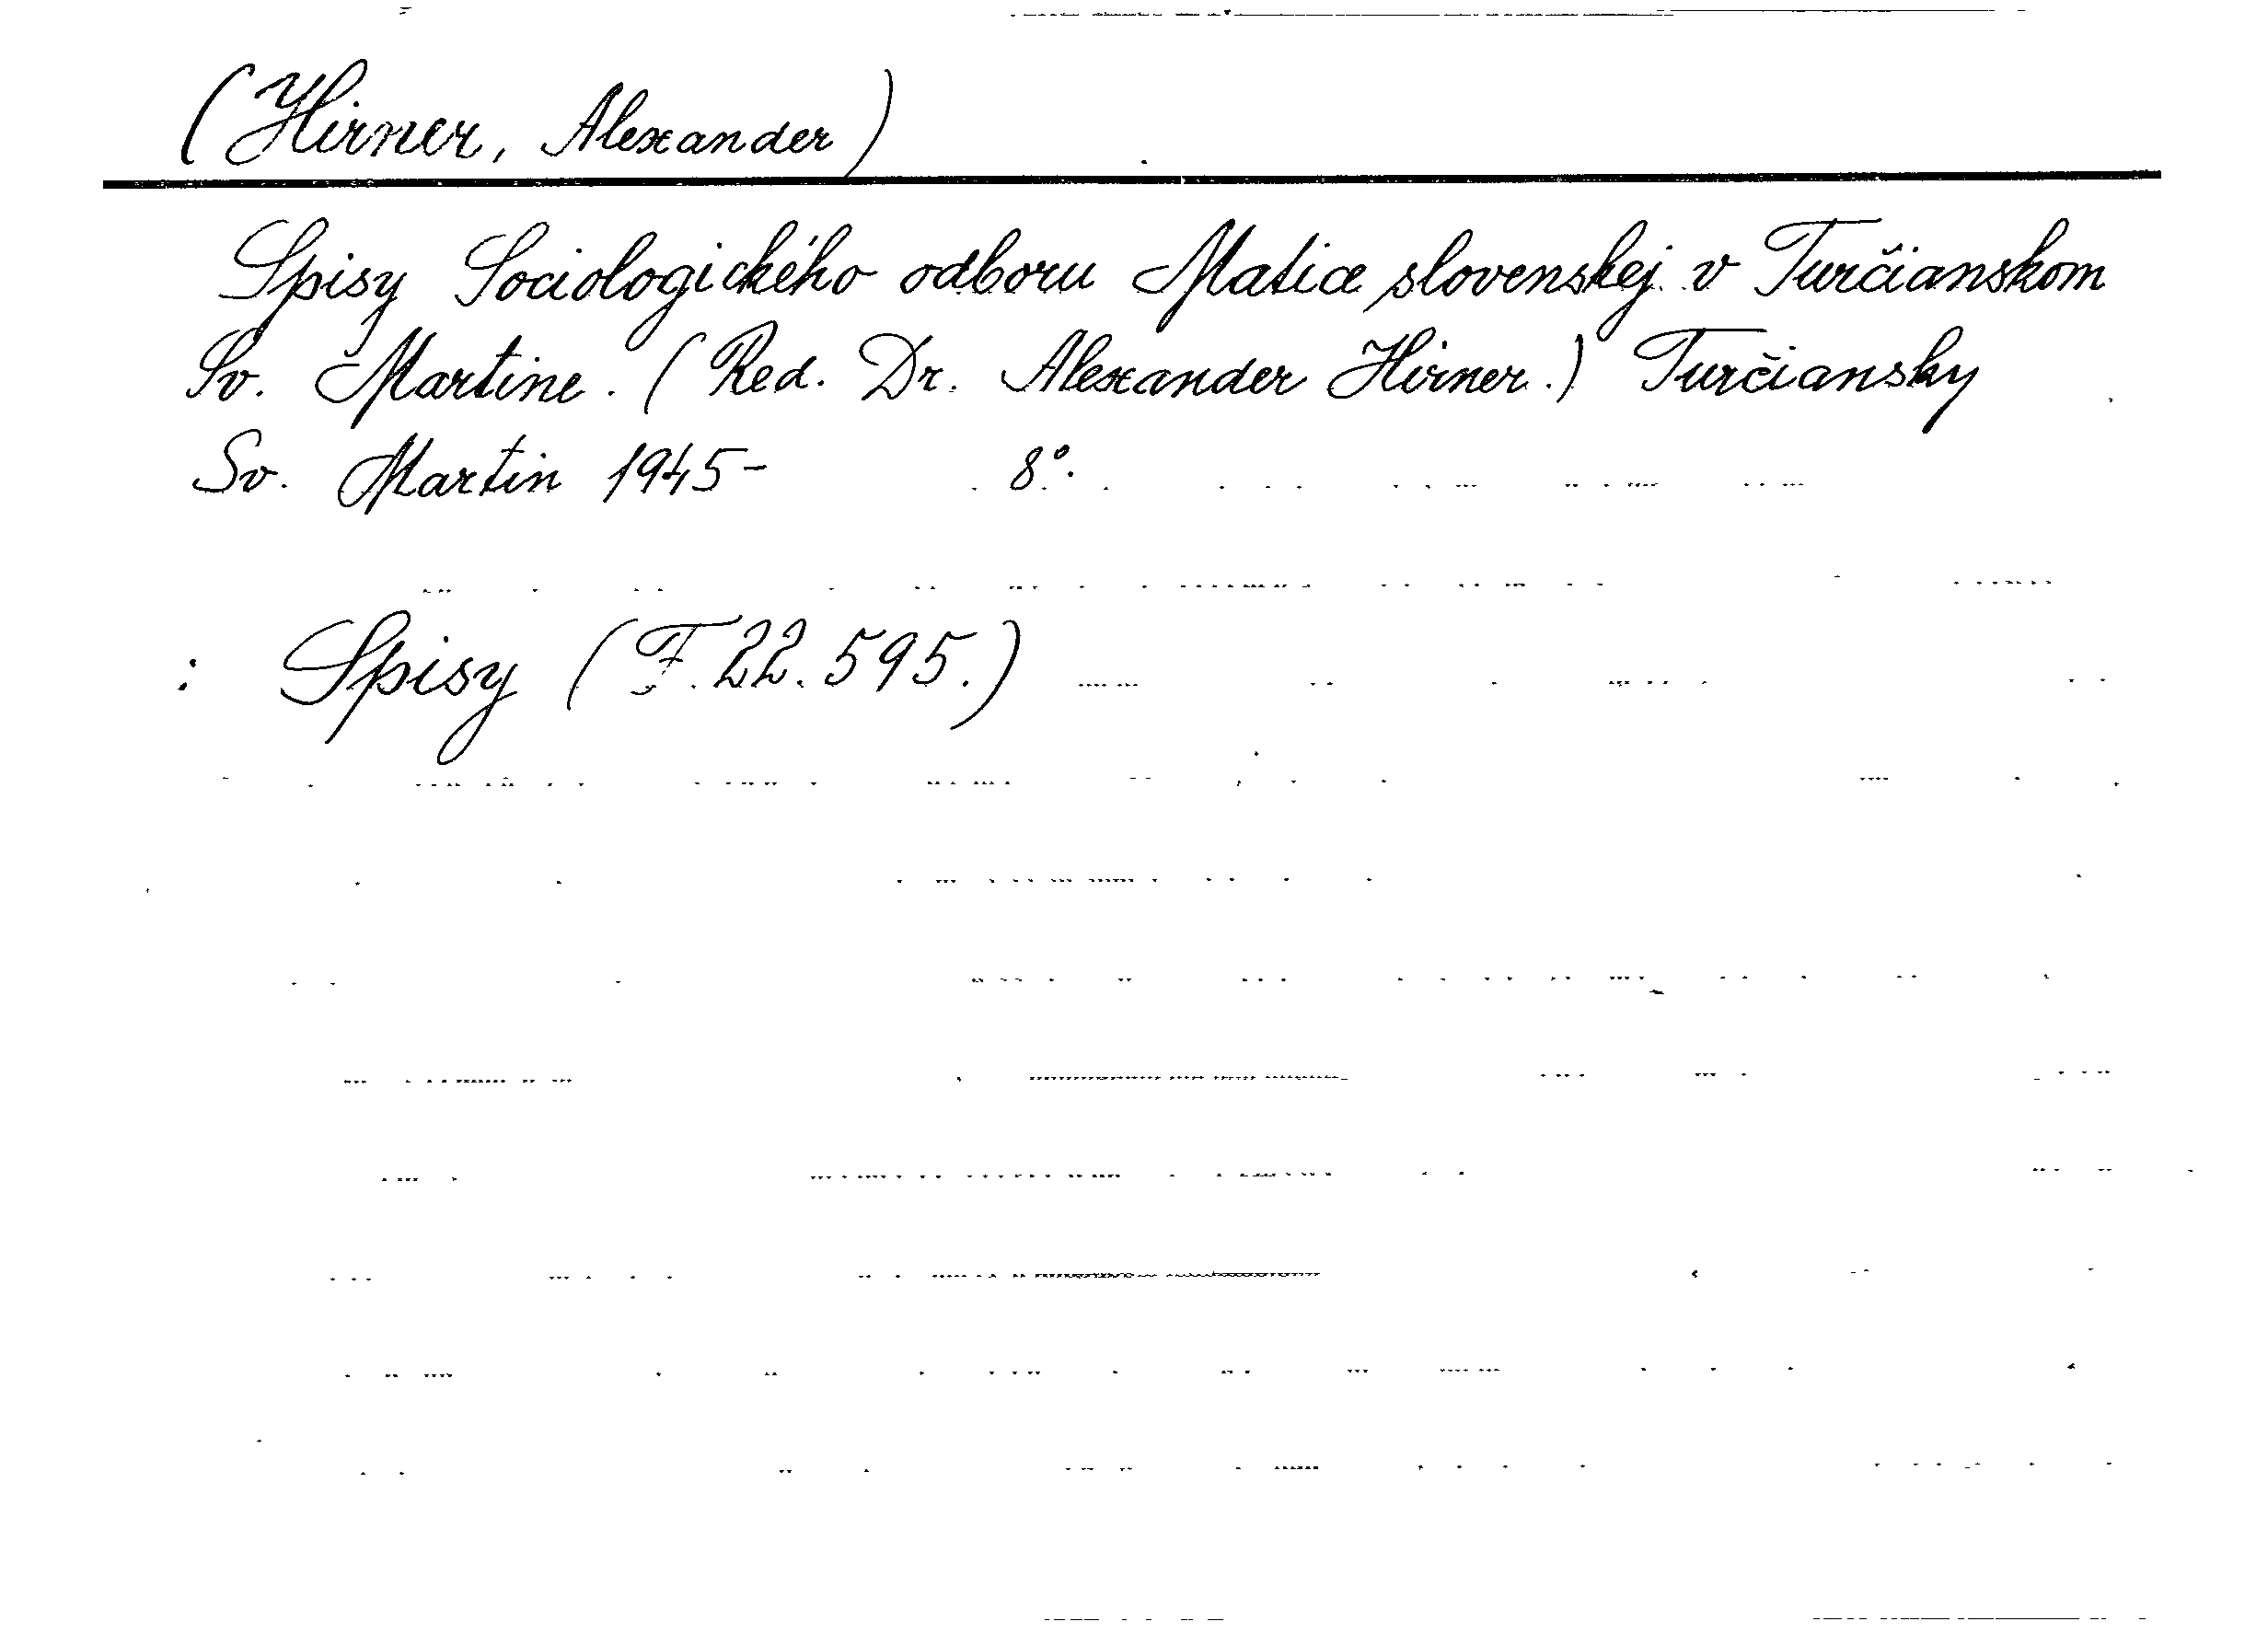 (Hirner, Alexander)
Spisy Sociologického odboru Matice slovenskej v Turčianskom
Sv. Martine. (Red. Dr. Alexander Hirner.) Turčiansky
Sv. Martin 1945- 8°.
: Spisy (F. 22.595.)